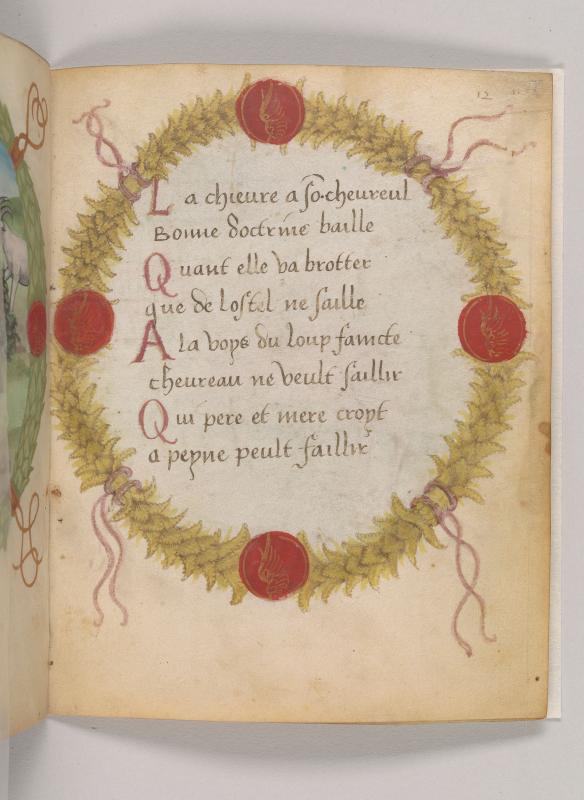 12
La chieure a sõ cheureul
Bonne doctrine baille
Quant elle va brotter
que de lostel ne saille
A la voys du loup faincte
cheureau ne veult saillir
Qui pere et mere croyt
a peyne peult faillir